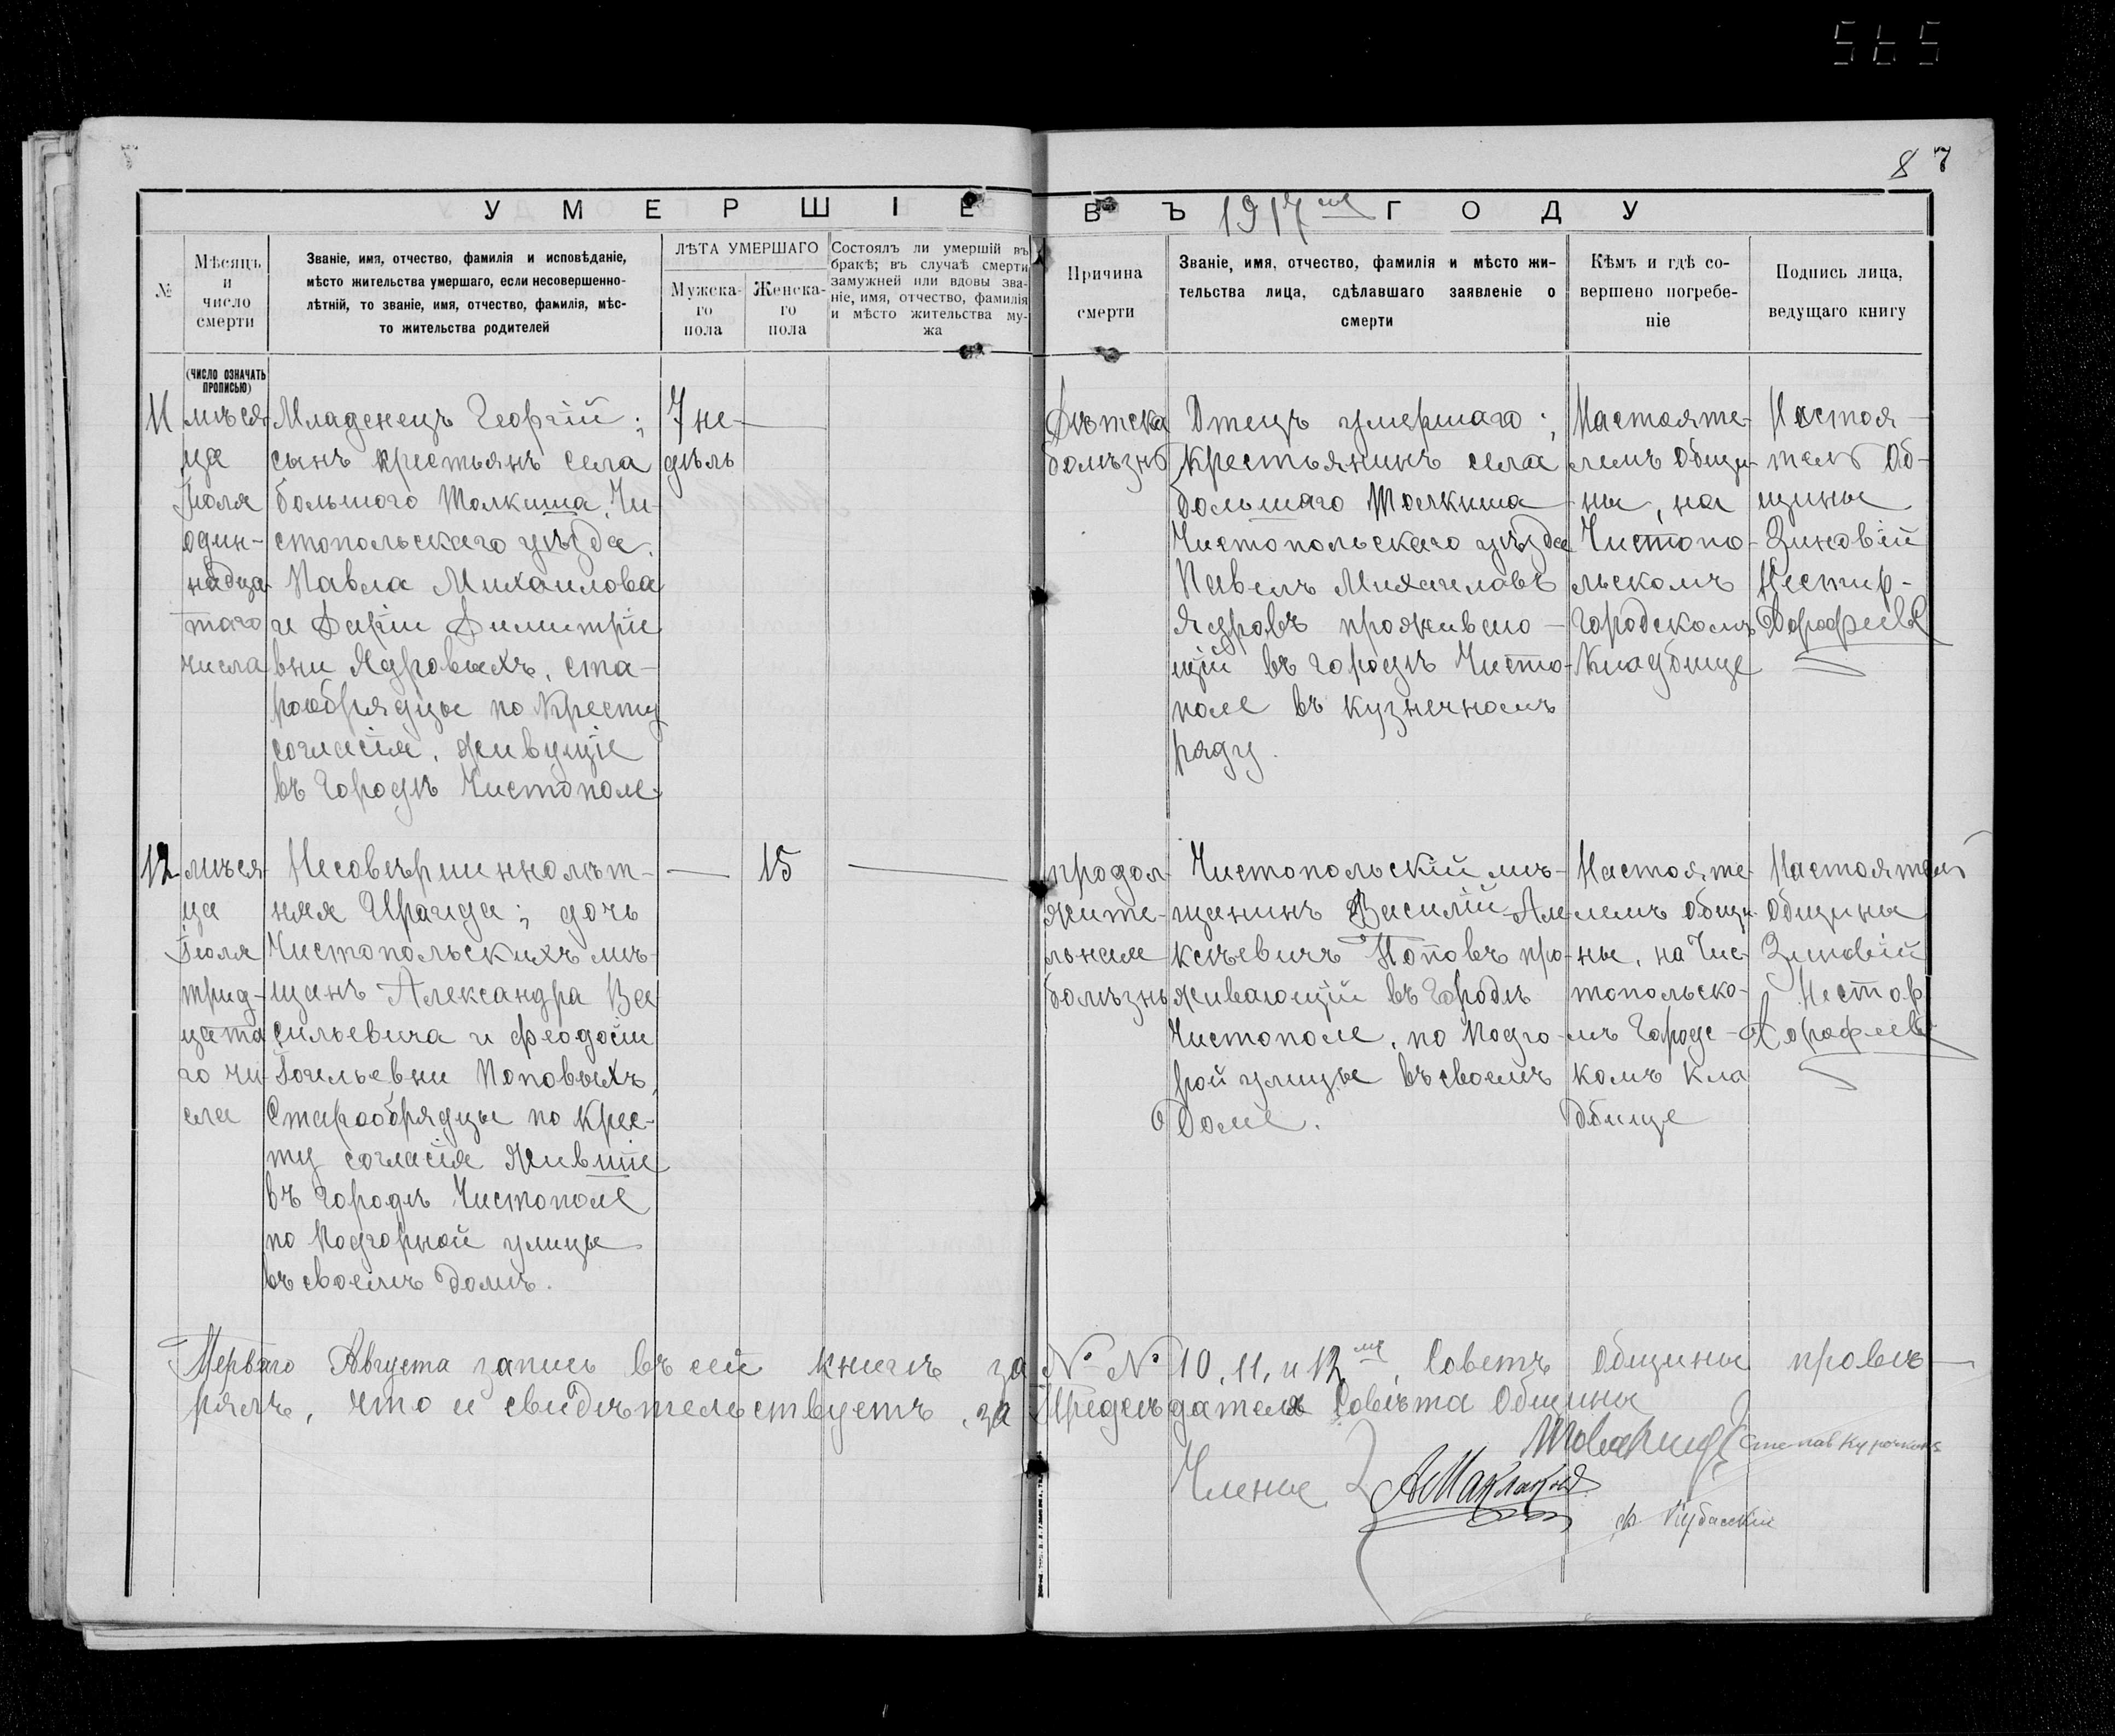 565
87
УМЕРШІЕ ВЪ 1917 ГОДУ
№
Мѣсяцъ
и
число
смерти
Званіе, имя, отчество, фамилія и исповѣданіе,
мѣсто жительства умершаго, если несовершенно-
лѣтній, то званіе, имя, отчество, фамилія, мѣс-
то жительства родителей
ЛѢТА УМЕРШАГО
Мужска-
го
пола
Женска-
го
пола
Состоялъ ли умершій въ
бракѣ; въ случаѣ смерти
замужней или вдовы зва-
ніе, имя, отчество, фамилія
и мѣсто жительства му-
жа
Причина
смерти
Званіе, имя, отчество, фамилія и мѣсто жи-
тельства лица, сдѣлавшаго заявленіе о
смерти
Кѣмъ и гдѣ со-
вершено погребе-
ніе
Подпись лица,
ведущаго книгу
(ЧИСЛО ОЗНАЧАТЬ
ПРОПИСЬЮ)
11
мѣся-
ца
Іюля
один-
надца-
таго
числа
Младенецъ Георгій;
сынъ крестьянъ села
большого Толкиша, Чи-
стопольскаго уѣзда.
Павла Михаилова
и Даріи Димитріе
вни Ядровыхъ, ста-
рообрядцы по Кресту
согласія, живущіе
въ Городѣ Чистополе.
7 не-
дѣль
Дѣтска
болѣзнь
Отецъ умершаго;
Крестьянинъ села
большаго Толкиша
Чистопольскаго уѣзда
Павелъ Михаиловъ
Ядровъ проживаю-
щій въ городѣ Чисто-
поле въ кузнечномъ
ряду.
Настояте-
лемъ Общи-
ны, на
Чистопо-
льскомъ
Городскомъ
Кладбище
Настоя-
тель Об-
щины
Зиновій
Нестор-
Дорофеевъ
12
мѣся-
ца
Іюля
трид-
цата
го чи-
сла
Несовѣршиннолѣт-
няя Ираида; дочь
Чистопольскихъ мѣ-
щанъ Александра Ва-
сильевича и Феодосіи
Васильевни Поповыхъ,
Старообрядцы по Крес-
ту согласія Жившіе
въ Городѣ Чистополе
по Подгорной улицы
въ своемъ домѣ.
15
продол-
жите-
льная
болѣзнь
Чистопольскій мѣ-
щанинъ Василій Але-
ксѣевичъ Поповъ про-
живающій въ Городѣ
Чистополе, по Подго-
рой улицы въ своемъ
доме.
Настояте-
лемъ общи-
ны, на Чис-
топольско-
мъ Городс-
комъ кла
дбище
Настоятель
Общины
Зиновій
Нестор
Дорофеевъ
Перваго Августа запись въ сей книгѣ за №№ 10, 11, и 12, Советъ Общины провѣ-
рялъ, что и свидѣтельствуетъ, за Предсѣдателя Совѣта Общины
Товарищъ Степанъ Курочкинъ
Члены
АМаклаковъ